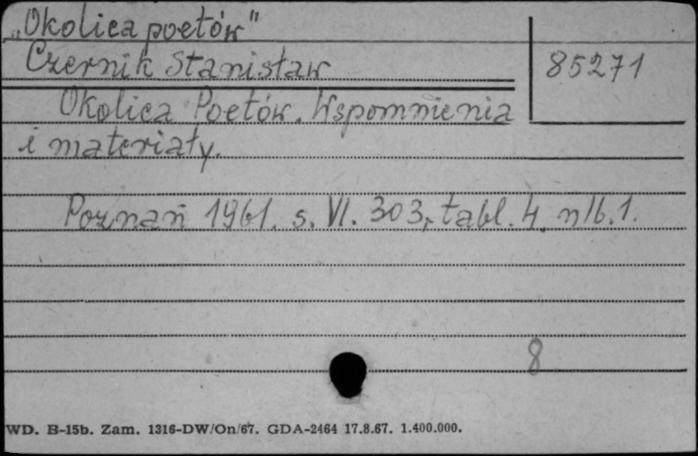 „Okolica poetów"
Czernik Stanisław
85271
Okolica Poetów. Wspomnienia
i materiały.
Poznań 1961. s. VI. 303, tabl. 4. nlb. 1.
8
WD. B-15b. Zam. 1316-DW/On/67. GDA-2464 17.8.67. 1.400.000.